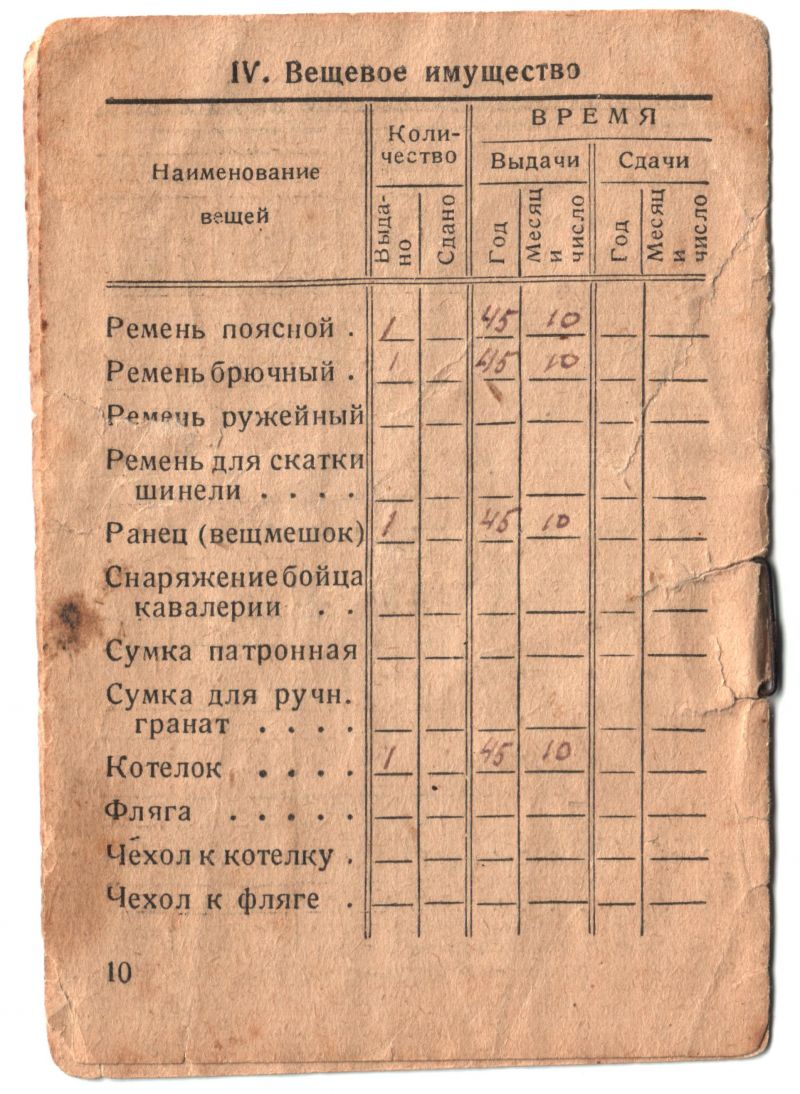 IV. Вещевое имущество
Наименование вещей
Количество
ВРЕМЯ
Выдачи
Сдачи
Выдано
Сдано
Год
Месяц и число
Год
Месяц и число
Ремень поясной . 1 45 10
Ремень брючный . 1 45 10
Ремень ружейный
Ремень для скатки
шинели . . . .
Ранец (вещмешок) 1 45 10
Снаряжение бойца
кавалерии . .
Сумка патронная
Сумка для ручн.
гранат . . . .
Котелок . . . . 1 45 10
Фляга . . . . .
Чехол к котелку .
Чехол к фляге .
10